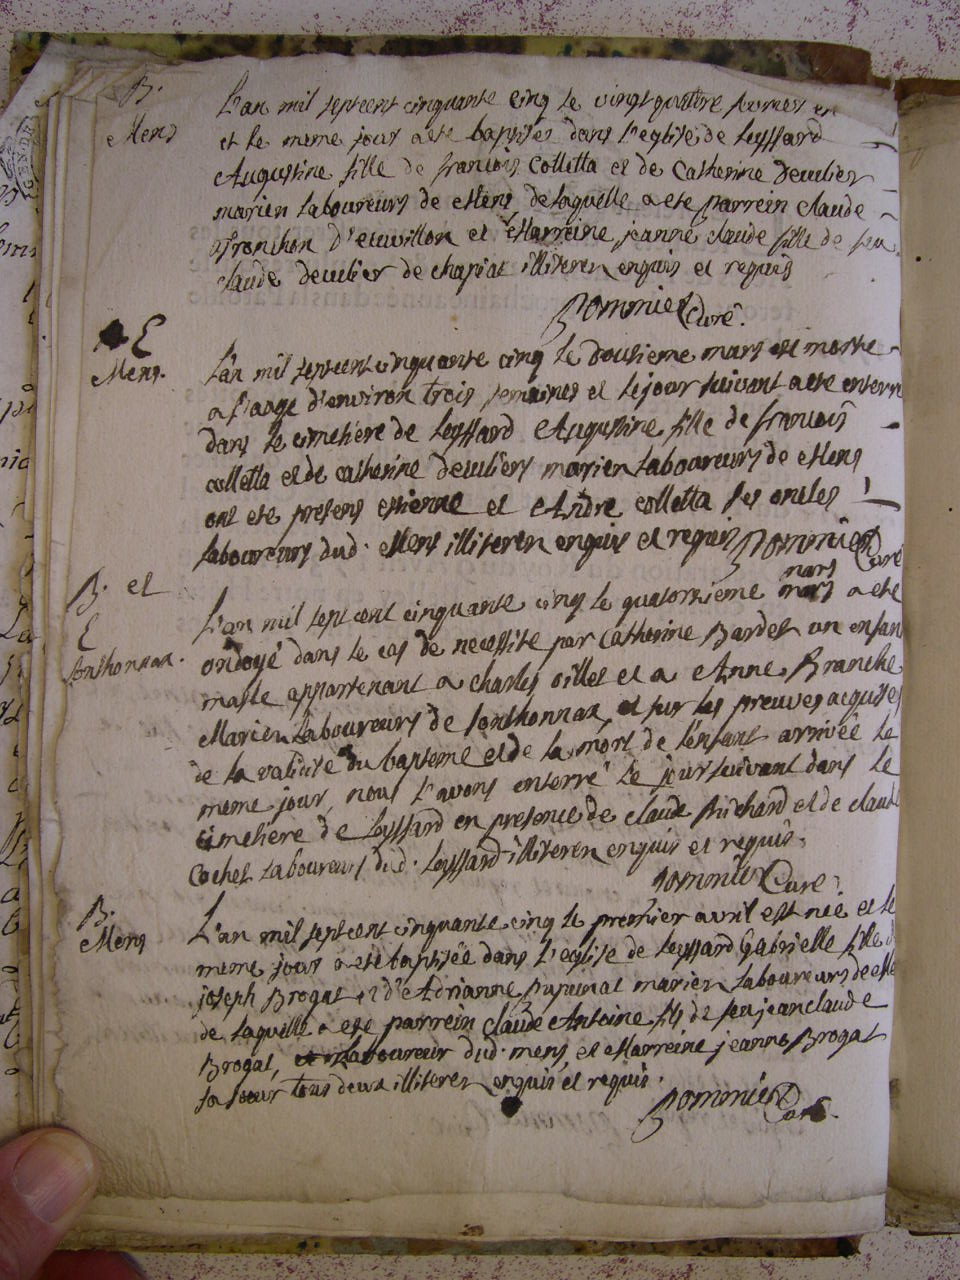 B.
Mens
L'an mil septcent cinquante cinq le vingt quatre fevrier est
et le meme jour a ete baptisée dans l'eglise de Leyssard
Augustine fille de francois Colletta et de Catherine Decubier
mariez Laboureurs de Mens de laquelle a ete parrein claude
d'etuvillon et Marreine jeanne claude fille de feu
claude decubier de chapiat illiterez enquis et requis
Pommier Curé.
E
Mens.
L'an mil septcent cinquante cinq le dousieme mars est morte
a l'aage d'environ trois semaines et le jour suivant a ete enterré
dans le cimetiere de Leyssard Augustine fille de francois
colletta et de catherine decubiers mariez Laboureurs de Mens
ont ete presens estienne et André colletta ses oncles
laboureurs dud. Mens illiterez enquis et requis Pommier Curé
B. et
E
Sonthonnax.
mars
L'an mil sept cent cinquante cinq le quatorzieme mars a ete
ondoyé dans le cas de necessité par Catherine Bardet un enfan
masle appartenant a charles oillet et a Anne Branche
Mariez Laboureurs de Sonthonnax, et sur les preuves acquises
de la validité du bapteme et de la mort de l'enfant arrivée le
meme jour, nous l'avons enterré le jour suivant dans le
cimetiere de Leyssard en presence de claude et de claude
Cochet Laboureurs dud. Leyssard illiterez enquis et requis.
Pommier Curé
B.
Mens
L'an mil septcent cinquante cinq le premier avril est née et le
meme jour a ete baptisée dans l'eglise de Leyssard Gabrielle fille d
joseph Brogat et d'Adrianne mariez Laboureurs de Me
de laquelle a ete parrein claude Antoine fils de feu jean claude
Brogat, Laboureur dud. mens, et Marreine jeanne Brogat
sa soeur tous deux illiterez enquis, et requis.
Pommier Curé.